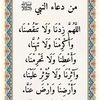 من دعاء النبي ﷺ
اللَّهُمَّ زِدْنَا وَلَا تَنْقُصْنَا،
وَأَكْرِمْنَا وَلَا تُهِنَّا،
وَأَعْطِنَا وَلَا تَحْرِمْنَا،
وَآثِرْنَا وَلَا تُؤْثِرْ عَلَيْنَا،
وَأَرْضِنَا وَارْضَ عَنَّا